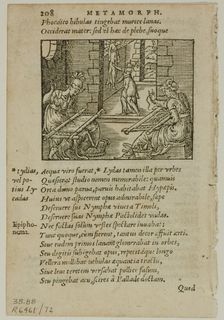 208 METAMORPH.
Phocaico bibulas tingebat murice lanas.
Occiderat mater: sed & haec de plebe, suoque
Aequa viro fuerat. * Lydas tamen illa per urbes
Quaesierat studio nomen memorabile: quamuis
Orta domo parua, paruis habitabat Hypaepis.
Huius vt aspicerent opus admirabile, saepe
Deseruere sui Nymphae vineta Timoli,
Deseruere suas Nymphae Pactolides vndas.
Nec factas solum vestes spectare iuuabat:
Tunc quoque, cùm fierent, tantus decor affuit arti.
Siue rudem primos lanam glomerabat in orbes,
Seu digitis subigebat opus, repetitáque longo
Vellera mollibat nebulas aequantia tractu,
Siue leui teretem versabat pollice fusum,
Seu pingebat acu, scires à Pallade doctam.
Quod
* Lydias,
vel po-
tius Ly-
Epipho-
nema.
38.88
R6461/72